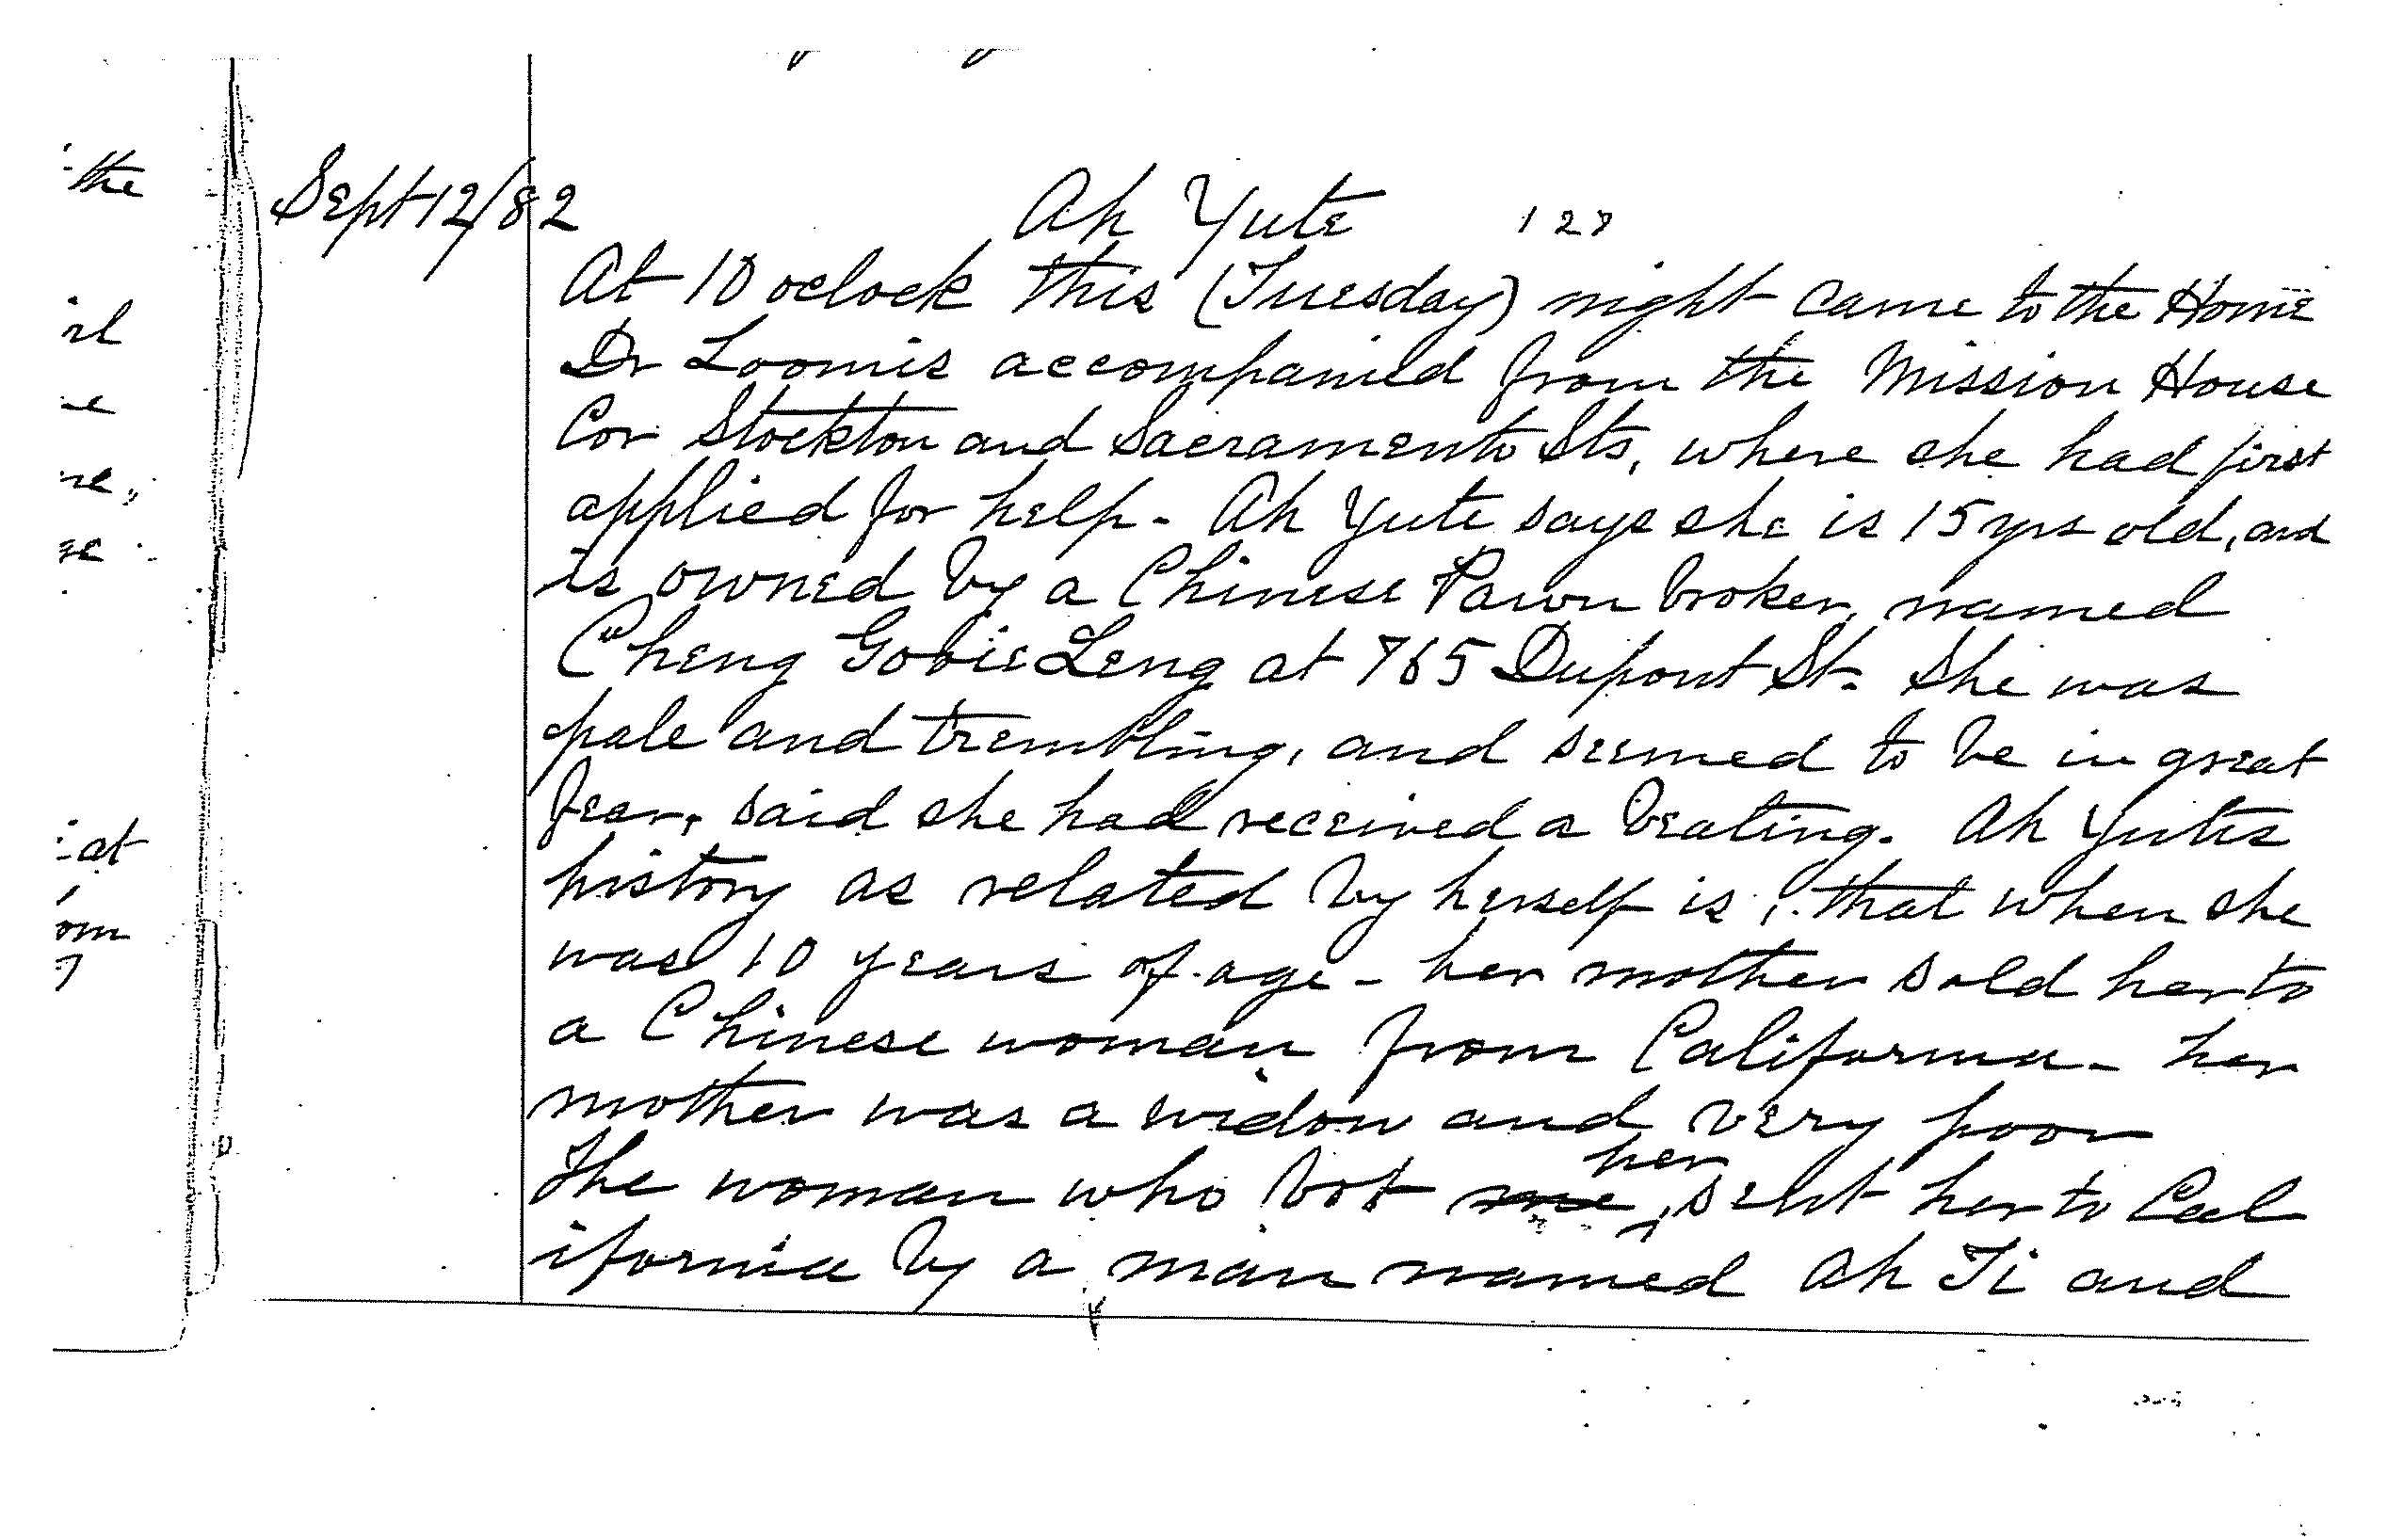 the
Sept 12/82
Ah Yute 127
At 10 oclock this (Tuesday) night came to the Home
Dr Loomis accompanied from the Mission House
Cor Stockton and Sacramento Sts, where she had first
applied for help - Ah Yute says she is 15 yrs old, and
is owned by a Chinese Pawn broker, named
Cheng Leng at 765 Dupont St. She was
pale and trembling, and seemed to be in great
fear, said she had received a beating. Ah Yutes
history as related by herself is, that when she
was 10 years of age - her mother sold her to
a Chinese woman from California - her
mother was a widow and very poor
The woman who bot me her, sent her to Cal
ifornia by a man named Ah Ti and
at
om